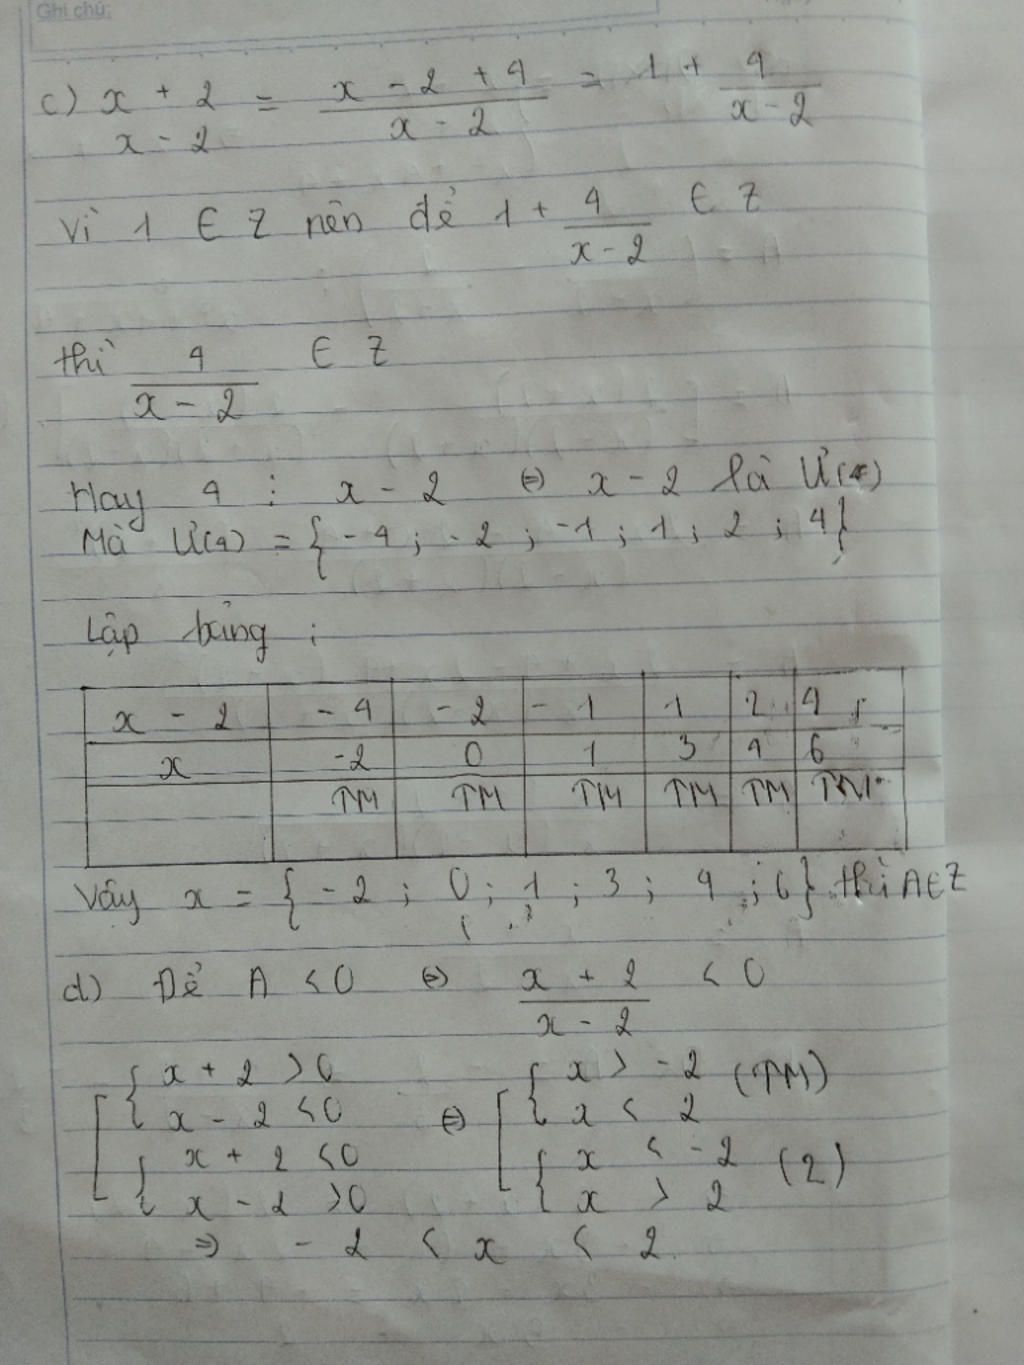 Ghi chú:
c) x + 2 / x - 2 = x - 2 + 4 / x - 2 = 1 + 4 / x - 2
Vì 1 ∈ Z nên để 1 + 4 / x - 2 ∈ Z
thì 4 / x - 2 ∈ Z
Hay 4 ⋮ x - 2 ⇔ x - 2 là Ư(4)
Mà Ư(4) = { -4 ; -2 ; -1 ; 1 ; 2 ; 4 }
Lập bảng :
x - 2 -4 -2 -1 1 2 4
x -2 0 1 3 4 6
TM TM TM TM TM TM
Vậy x = { -2 ; 0 ; 1 ; 3 ; 4 ; 6 } thì A ∈ Z
d) Để A < 0 ⇔ x + 2 / x - 2 < 0
x + 2 > 0 x > -2 (TM)
x - 2 < 0 ⇔ x < 2
x + 2 < 0 x < -2 (2)
x - 2 > 0 x > 2
⇒ -2 < x < 2